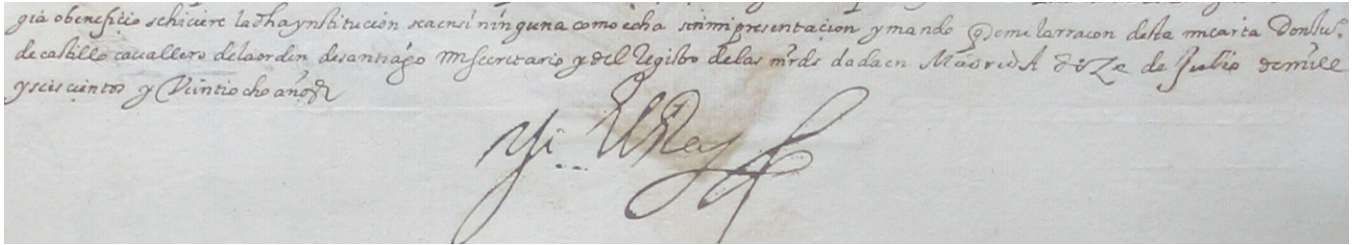 gia o beneficio se hiciere la dha ynstitucion sea en si ninguna como echa sin mi presentacion y mando q tome la rracon desta mi carta Don Ju.º
de castillo cavallero de la orden de santiago mi secretario y del Registro de las mrds dada en Madrid A doze de Julio de mill
y seiscientos y Veintiocho años
Yo El Rey